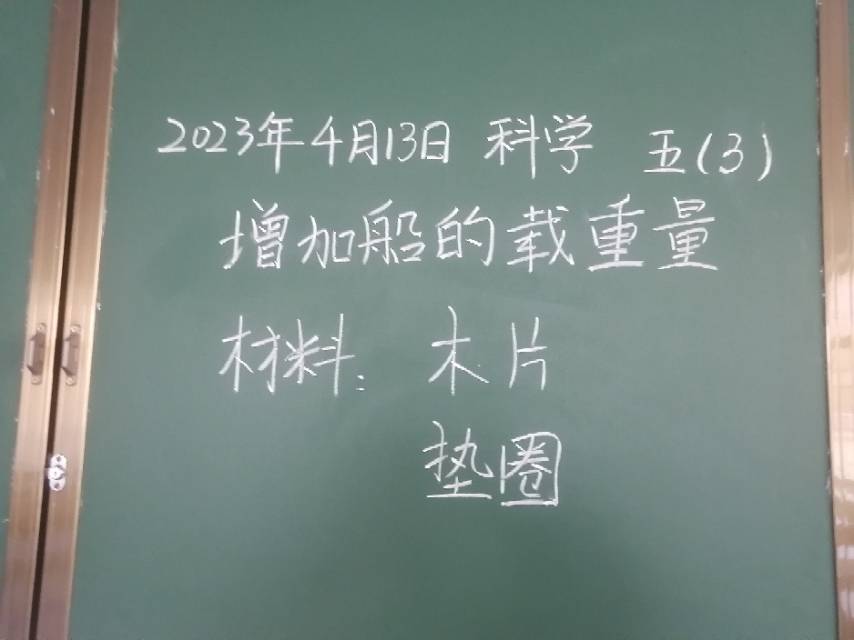 2023年4月13日 科学 五(3)
增加船的载重量
材料: 木片
垫圈